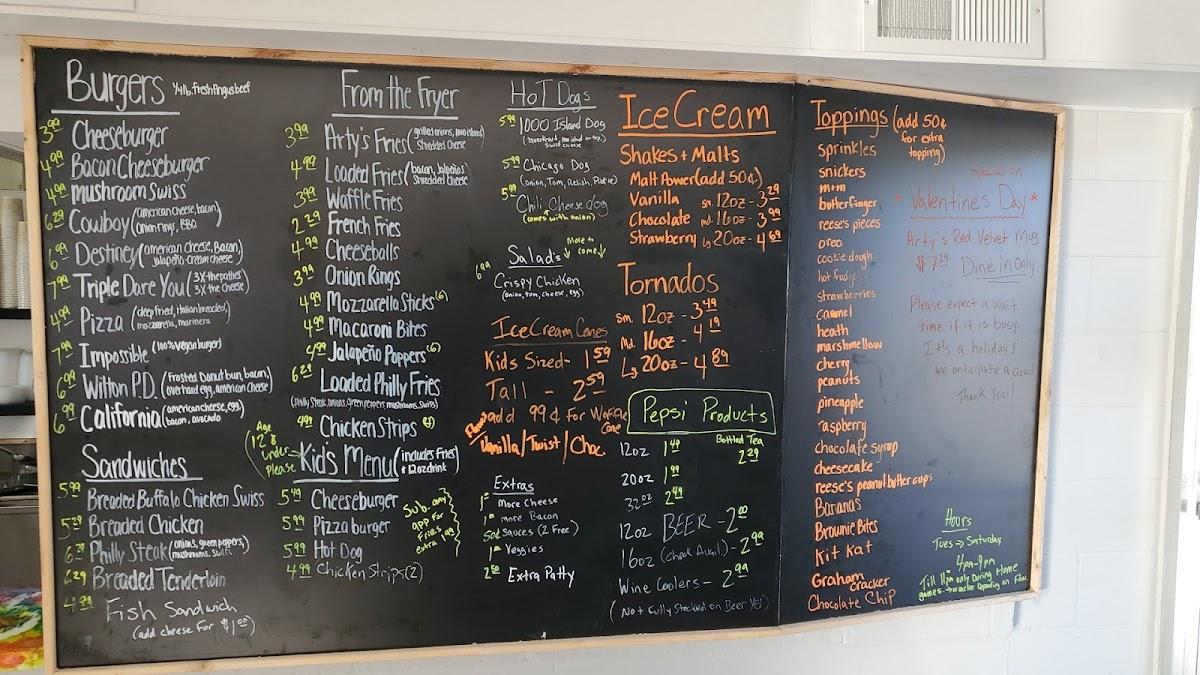 Burgers 1/4 lb. fresh Angus beef
3.99 Cheeseburger
4.99 Bacon Cheeseburger
4.99 mushroom Swiss
6.29 Cowboy (american cheese, bacon, onion rings, BBQ)
6.99 Destiney (american cheese, Bacon, jalapeño cream cheese)
7.99 Triple Dare You (3X the patties 3X the cheese)
4.99 Pizza (deep fried, italian breaded, mozzarella, marinera)
7.99 Impossible (100% vegan burger)
6.99 Wilton P.D. (Frosted Donut bun, bacon, overhard egg, american cheese)
6.99 California (american cheese, egg, bacon, avocado)
Sandwiches
5.99 Breaded Buffalo Chicken Swiss
5.29 Breaded Chicken
6.29 Philly Steak (onions, green peppers, mushrooms, Swiss)
6.29 Breaded Tenderloin
4.99 Fish Sandwich
(add cheese for $1.00)
From the Fryer
3.99 Arty's Fries (grilled onions, 1000 island, Shredded Cheese)
4.99 Loaded Fries (bacon, Jalapeños Shredded Cheese)
3.99 Waffle Fries
2.29 French Fries
4.99 Cheeseballs
3.99 Onion Rings
4.99 Mozzarella Sticks (6)
4.99 Macaroni Bites
4.99 Jalapeño Poppers (6)
6.29 Loaded Philly Fries
(Philly Steak, onions, green peppers, mushrooms, Swiss)
4.99 Chicken Strips (4)
Age 12 & under Please
Kids Menu (includes Fries & 12oz drink)
5.49 Cheeseburger
5.99 Pizza burger
5.99 Hot Dog
4.99 Chicken Strips (2)
Sub. any
app for
Fries
extra 1.99
Hot Dogs
5.99 1000 Island Dog
5.99 Chicago Dog
(onion, Tom, Relish, Pickle)
5.99 Chili Cheese dog
(comes with onion)
More to come
Salads
6.99 Crispy Chicken
(onion, tom, cheese, egg)
Ice Cream Cones
Kids Sized - 1.59
Tall - 2.59
add 99¢ for Waffle Cone
Flavors Vanilla/Twist/Choc.
Extras
1.00 More Cheese
1.00 More Bacon
50¢ Sauces (2 Free)
1.00 Veggies
2.50 Extra Patty
Ice Cream
Shakes + Malts
Malt Power (add 50¢)
Vanilla sm. 12oz - 3.29
Chocolate md. 16oz - 3.99
Strawberry Lg 20oz - 4.69
Tornados
Sm. 12oz - 3.49
Md. 16oz - 4.19
Lg 20oz - 4.89
Pepsi Products
12oz 1.49
20oz 1.99
32oz 2.49
Bottled Tea
2.29
12oz BEER - 2.00
16oz (Check Avail) - 2.99
Wine Coolers - 2.99
(Not Fully Stocked on Beer Yet)
Toppings (add 50¢ for extra topping)
sprinkles
snickers
m+m
butterfinger
reese's pieces
oreo
cookie dough
hot fudge
strawberries
caramel
heath
marshmellow
cherry
peanuts
pineapple
raspberry
chocolate syrup
cheesecake
reese's peanut butter cups
Bananas
Brownie Bites
Kit Kat
Graham cracker
Chocolate Chip
Special on
* Valentines Day *
Arty's Red Velvet Mug
$7.29 Dine In Only
Please expect a wait
time if it is busy.
It's a holiday &
we anticipate a crowd
Thank You!
Hours
Tues → Saturday
4pm-9pm
Till 11pm only During Home
games → or earlier Depending on Flow